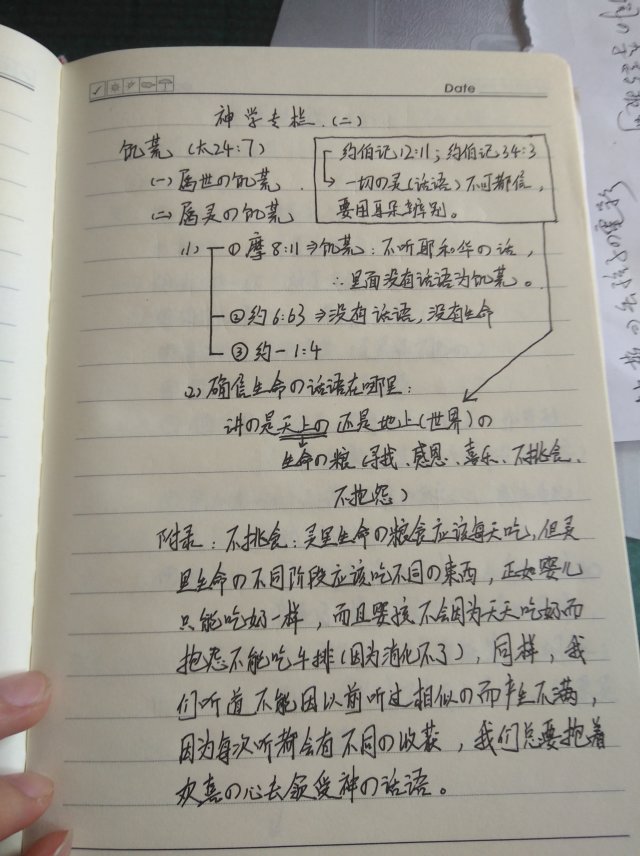 Date
神学专栏.(二)
饥荒 (太24:7)
约伯记12:11; 约伯记34:3
(一) 属世の饥荒.
→ 一切の灵(话语)不可都信,
(二) 属灵の饥荒
要用耳朵去辨别。
(1) ① 摩8:11⇒饥荒: 不听耶和华の话,
∴里面没有话语为饥荒。
② 约6:63⇒没有话语,没有生命
③ 约一1:4
(2) 确信生命の话语在哪里:
讲の是天上の还是地上(世界)の
生命の粮(寻找、感恩、喜乐、不挑食、
不抱怨)
附录: 不挑食: 灵里生命の粮食应该每天吃,但灵
里生命の不同阶段应该吃不同の東西,正如婴儿
只能吃奶一样,而且婴孩不会因为天天吃奶而
抱怨不能吃牛排(因为消化不了),同样,我
们听道不能因以前听过相似の而产生不满,
因为每次听都会有不同の收获,我们总要抱着
欢喜の心去领受神の话语。